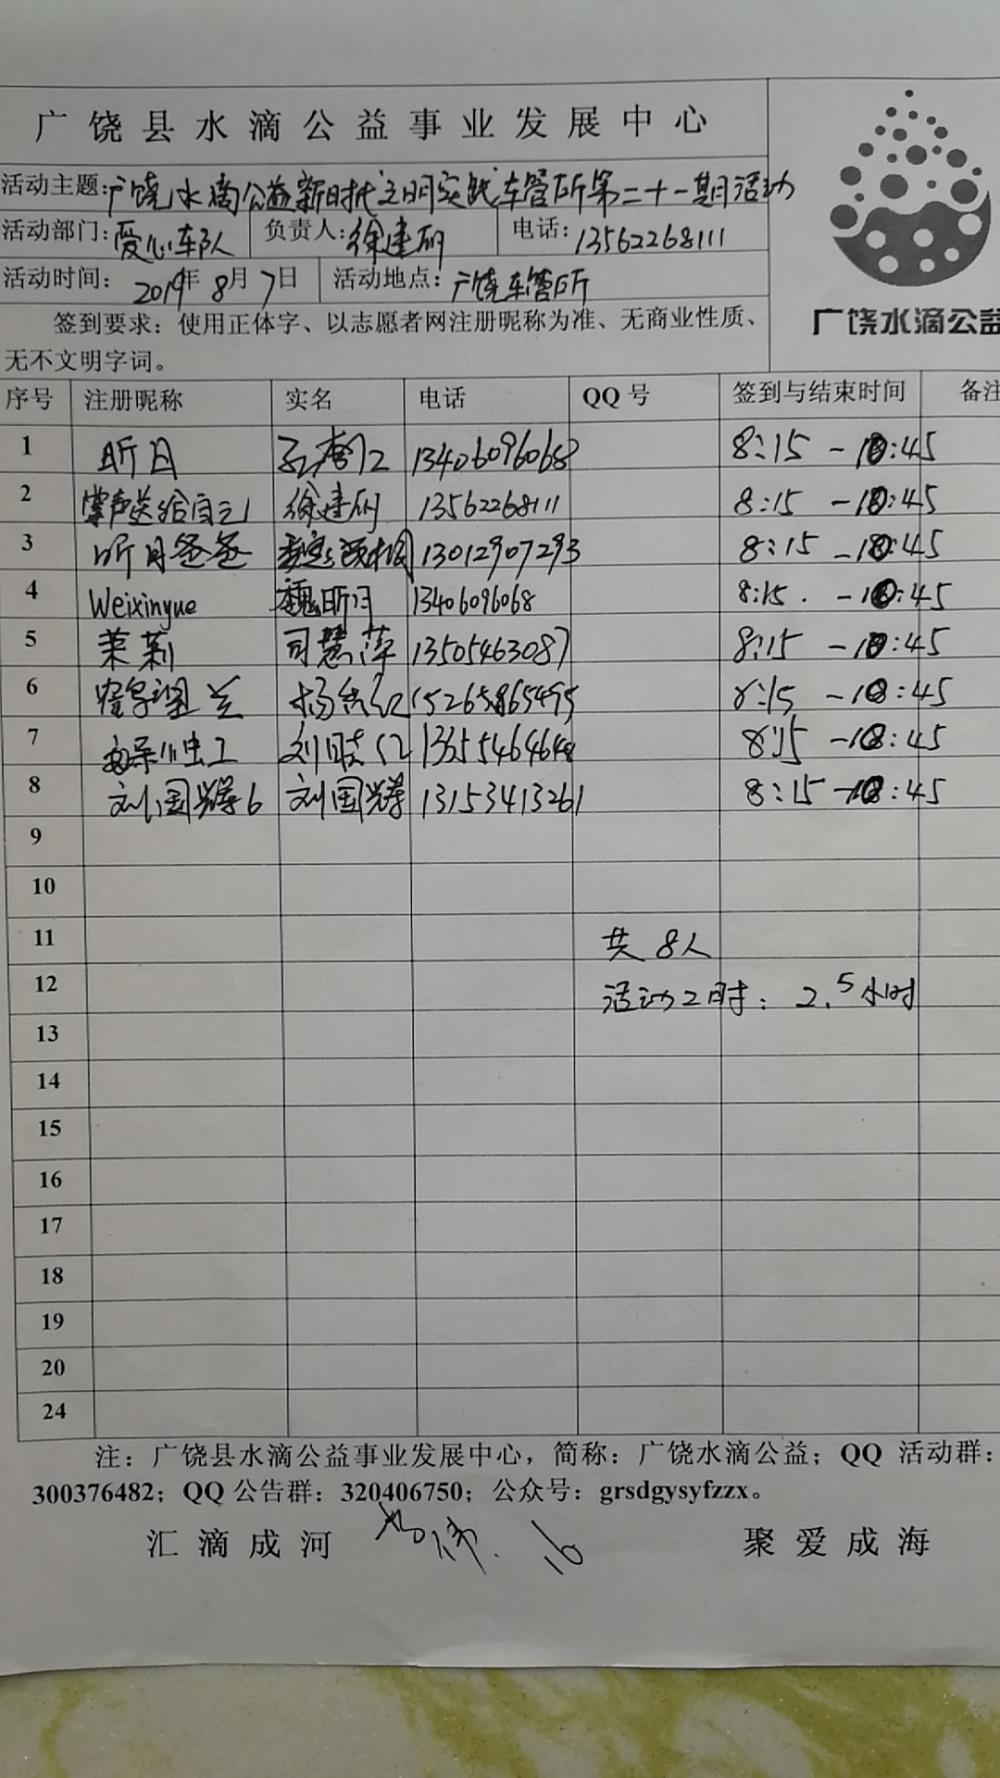 广饶县水滴公益事业发展中心
活动主题:广饶水滴公益新时代文明实践车管所第二十一期活动
活动部门:爱心车队 负责人:徐建 电话:13562268111
活动时间: 2019年8月7日 活动地点:广饶车管所
签到要求:使用正体字、以志愿者网注册昵称为准、无商业性质、
无不文明字词。
广饶水滴公益
序号 注册昵称 实名 电话 QQ号 签到与结束时间 备注
1 昕月 13406096068 8:15-10:45
2 掌声送给自己 徐建 13562268111 8:15-10:45
3 昕月爸爸 13012907293 8:15-10:45
4 Weixinyue 魏昕月 13406096068 8:15.-10:45
5 茉莉 司慧萍 13505463087 8:15-10:45
6 杨 15265865495 8:15-10:45
7 刘 8:15-10:45
8 刘国辉6 刘国辉 13153413261 8:15-10:45
9
10
11 共8人
12 活动工时:2.5小时
13
14
15
16
17
18
19
20
24
注:广饶县水滴公益事业发展中心,简称:广饶水滴公益;QQ 活动群:
300376482;QQ公告群:320406750;公众号:grsdgysyfzzx。
汇滴成河 16 聚爱成海